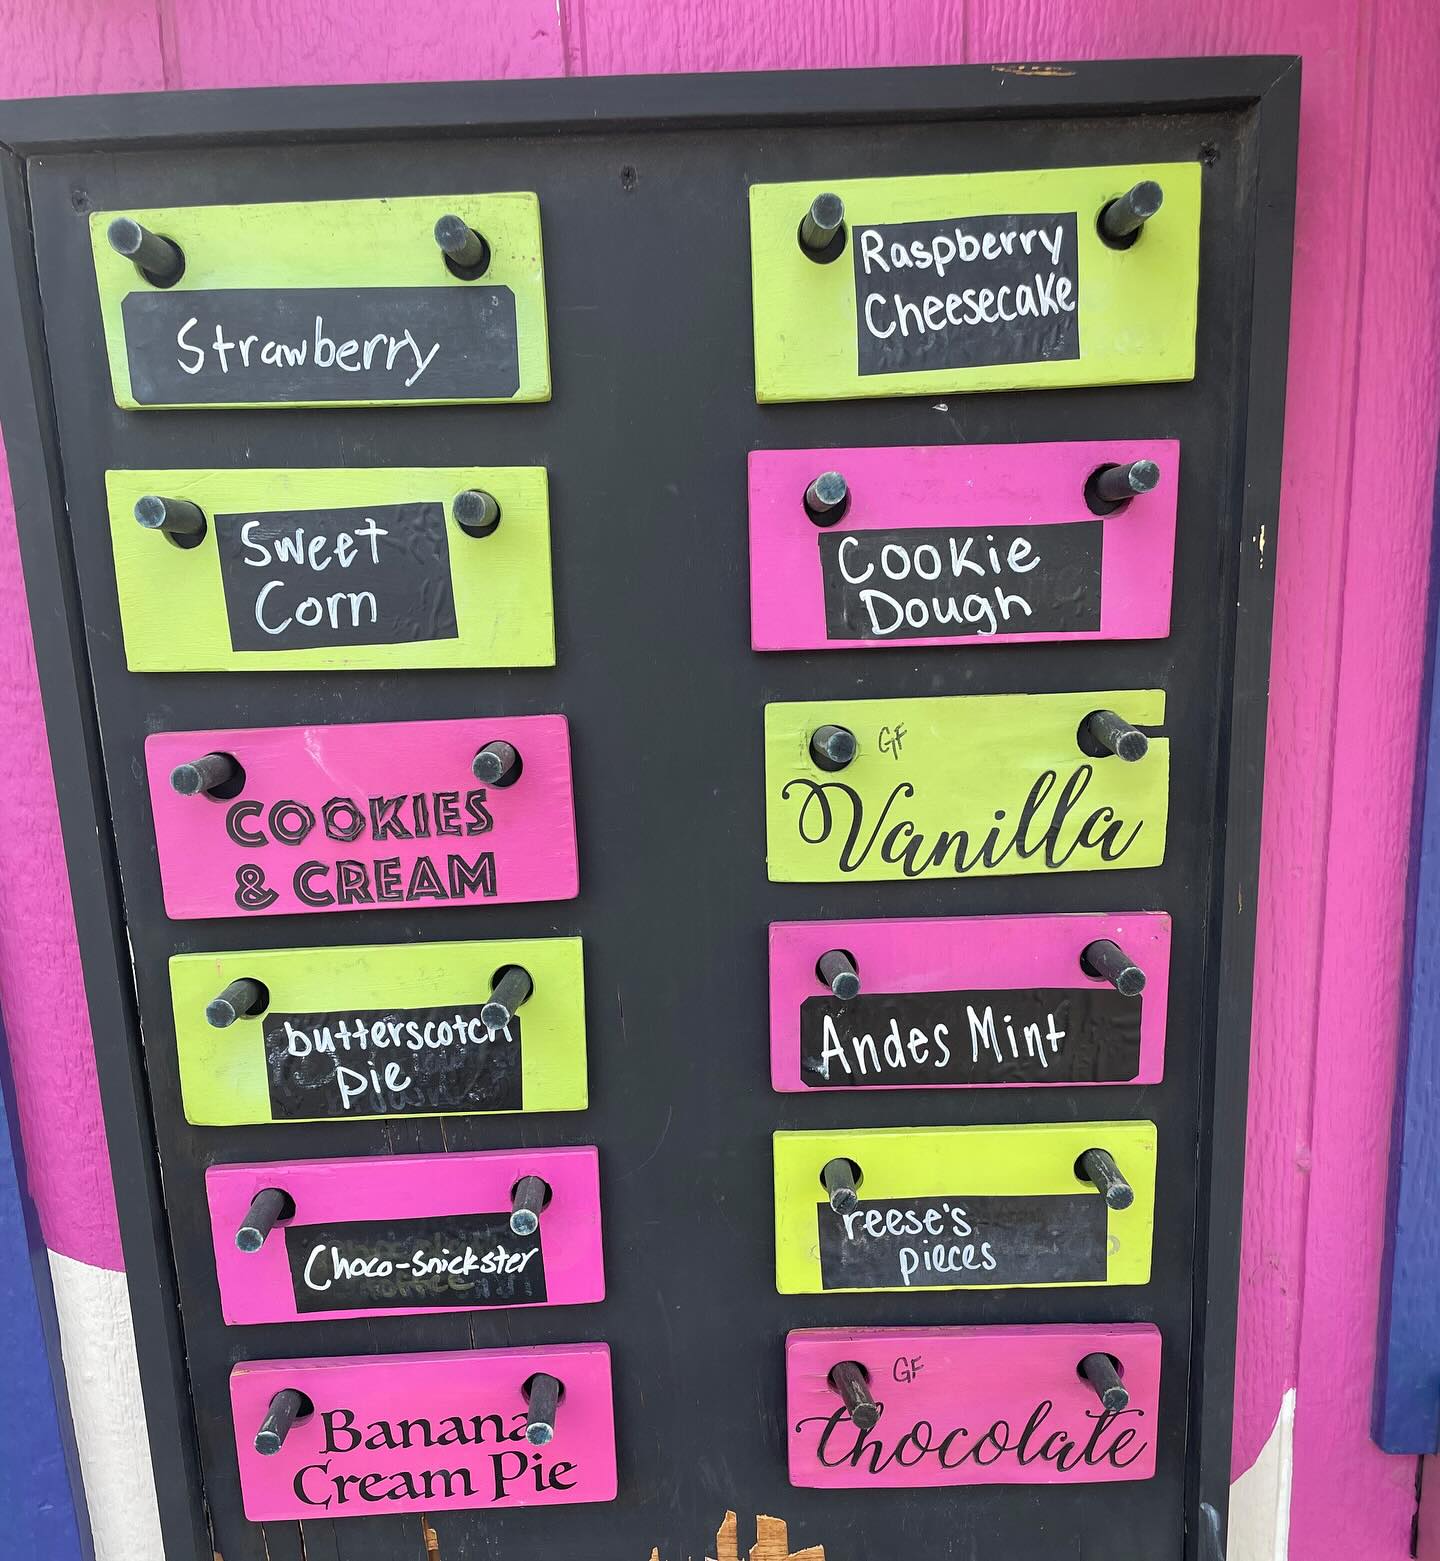 Strawberry
Sweet
Corn
COOKIES
& CREAM
butterscotch
pie
Choco-Snickster
Banana
Cream Pie
Raspberry
Cheesecake
Cookie
Dough
GF
Vanilla
Andes Mint
reese's
pieces
GF
Chocolate